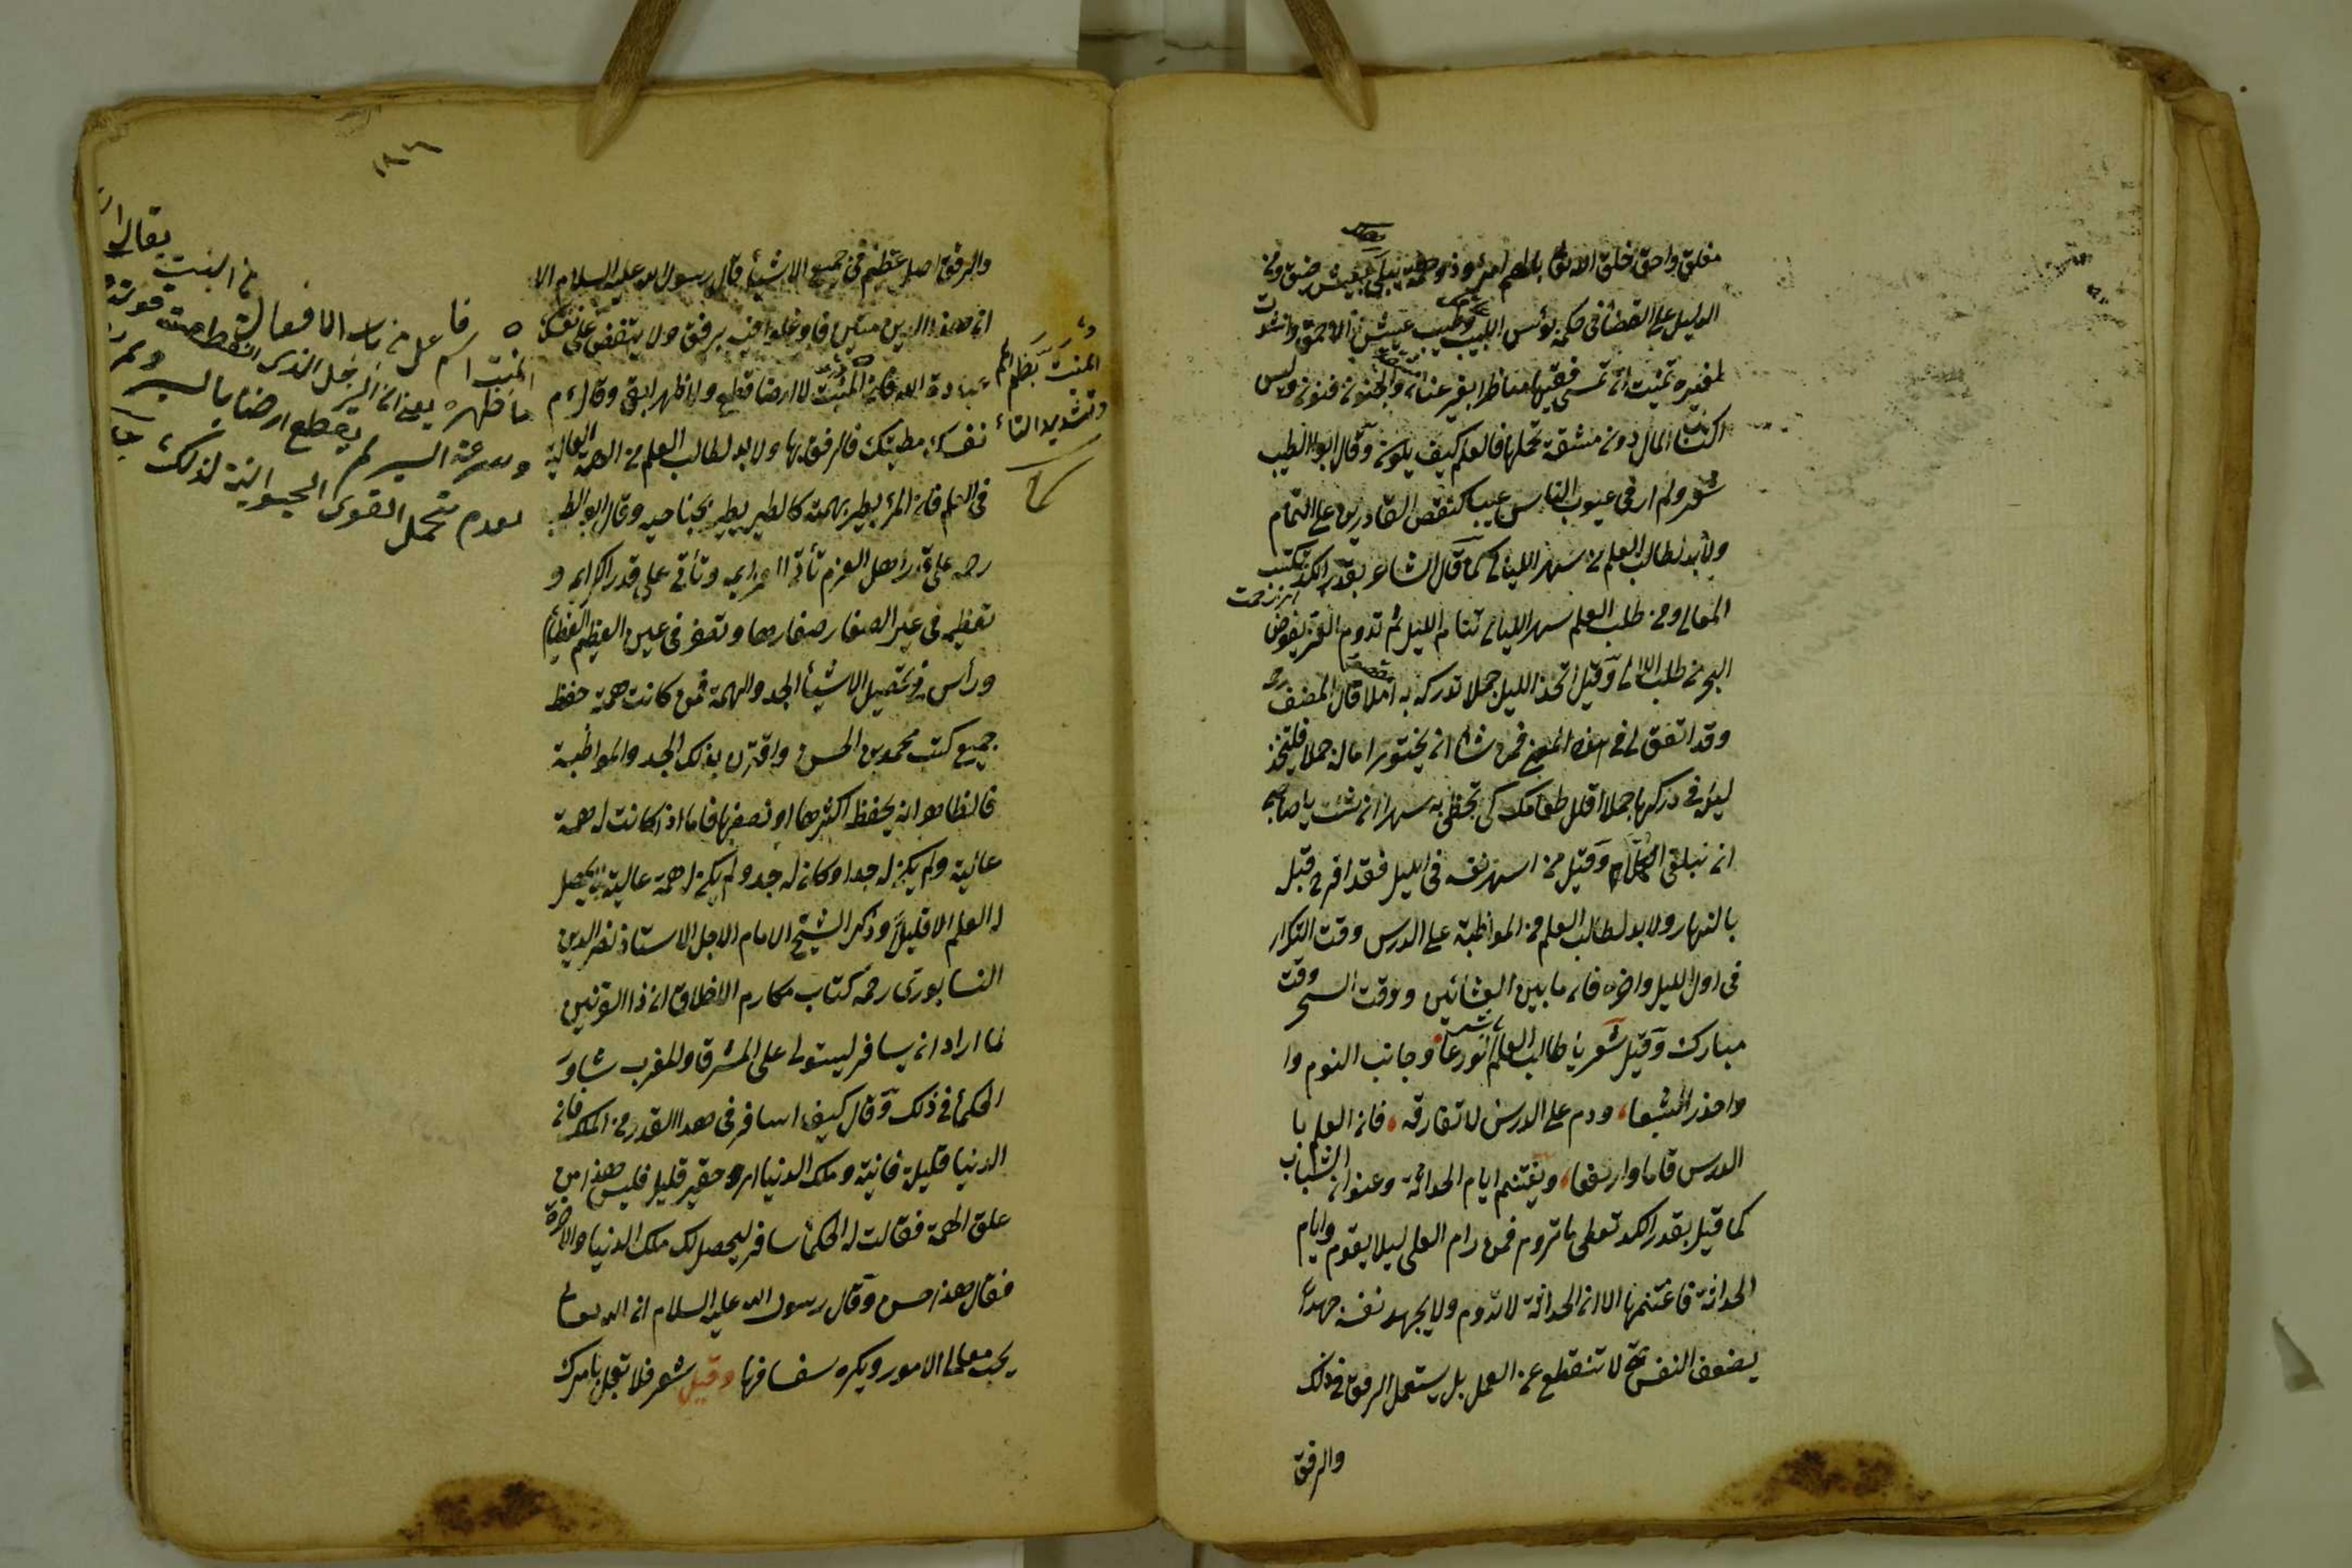 مغلق واحق خلق الله تعالى بالهم امرؤ ذو همة يبلى بعيش ضيق ومن
الدليل على القضاء فى حكمه بؤس اللبيب وطيب عيش الاحمق وانشدت
لغيره تمنيت ان تمسى فقيها مناظرا بغير عناء والجنون فنون وليس
اكتساب المال دون مشقة تحملها فالعلم كيف يكون وقال ابو الطيب
شعر ولم ار فى عيوب الناس عيبا كنقص القادرين على التمام
ولا بد لطالب العلم من سهر الليالى كما قال الشاعر بقدر الكد تكتسب
المعالى ومن طلب العلى سهر الليالى تنام الليل ثم تدوم العز يغوض
البحر من طلب اللآلى وقيل اتخذ الليل جملا تدرك به املا قال المصنف رحمه
وقد اتفق لى فى هذا المعنى فمن شاء ان يحتوى اماله جملا فليتخذ
ليله فى دركها جملا اقلل طعامك كى تحظى به سهرا ان شئت يا صاحبى
ان تبلغ الكملا وقيل من اسهر نفسه فى الليل فقد افرح قبله
بالنهار ولا بد لطالب العلم من المواظبة على الدرس وقت التكرار
فى اول الليل واخره فان ما بين العشائين ووقت السحر وقت
مبارك وقيل شعر يا طالب العلم باشر الورعا وجانب النوم وا
واحذر الشبعا ودم على الدرس لا تفارقه فان العلم با
الدرس قاما وارتفعا ويغتنم ايام الحداثة وعنوان الشباب
كما قيل بقدر الكد تعطى ما تروم فمن رام العلى ليلا يقوم وايام
الحداثة فاغتنمها الا ان الحداثة لا تدوم ولا يجهد نفسه جهدا
يضعف النفس حتى لا تنقطع عن العمل بل يستعمل الرفق فى ذلك
والرفق
١٨٦
والرفق اصل عظيم فى جميع الاشياء قال رسول الله عليه السلام الا
ان هذا الدين متين فاوغلوا فيه برفق ولا يبغض على نفسك
عبادة الله فان المنبت لا ارضا قطع ولا ظهرا ابقى وقال ء م
نفسك مطيتك فالرفق بها ولا بد لطالب العلم من الهمة العالية
فى العلم فان المرء يطير بهمته كالطير يطير بجناحيه وقال ابو الطيب
رحمه على قدر اهل العزم تأتى العزايم وتأتى على قدر الكرام و
تعظم فى عين الصغار صغارها وتصغر فى عين العظيم العظائم
ورأس فى تحصيل الاشياء الجد والهمة فمن كانت همته حفظ
جميع كتب محمد بن الحسن واقترن بذلك الجد والمواظبة
فالظاهر انه يحفظ اكثرها او نصفها فاما اذا كانت له همة
عالية ولم يكن له جدا وكان له جد ولم يكن له همة عالية لا يحصل
له العلم الا قليلا وذكر الشيخ الامام الاجل الاستاذ نصر الدين
النسابورى رحمه كتاب مكارم الاخلاق ان ذا القرنين
لما اراد ان يسافر ليستولى على المشرق والمغرب شاور
الحكماء فى ذلك وقال كيف اسافر فى هذا القدر من الملك فان
الدنيا قليلة فانية وملك الدنيا امر حقير قليل فليس هذا من
علو الهمة فقالت له الحكماء سافر ليحصل لك ملك الدنيا والاخرة
فقال هذا حسن وقال رسول الله عليه السلام ان الله تعالى
يحب معالى الامور ويكره سفسافها وقيل شعر فلا تعجل بامرك
المنبت بضم الميم
وتشديد التاء
يقال
المنبت اسم فاعل من باب الانفعال
يعنى ان الرجل الذى
وسرعة السير لم يقطع ارضا بالسير ولم
لعدم تحمل القوى الحيوانية لذلك